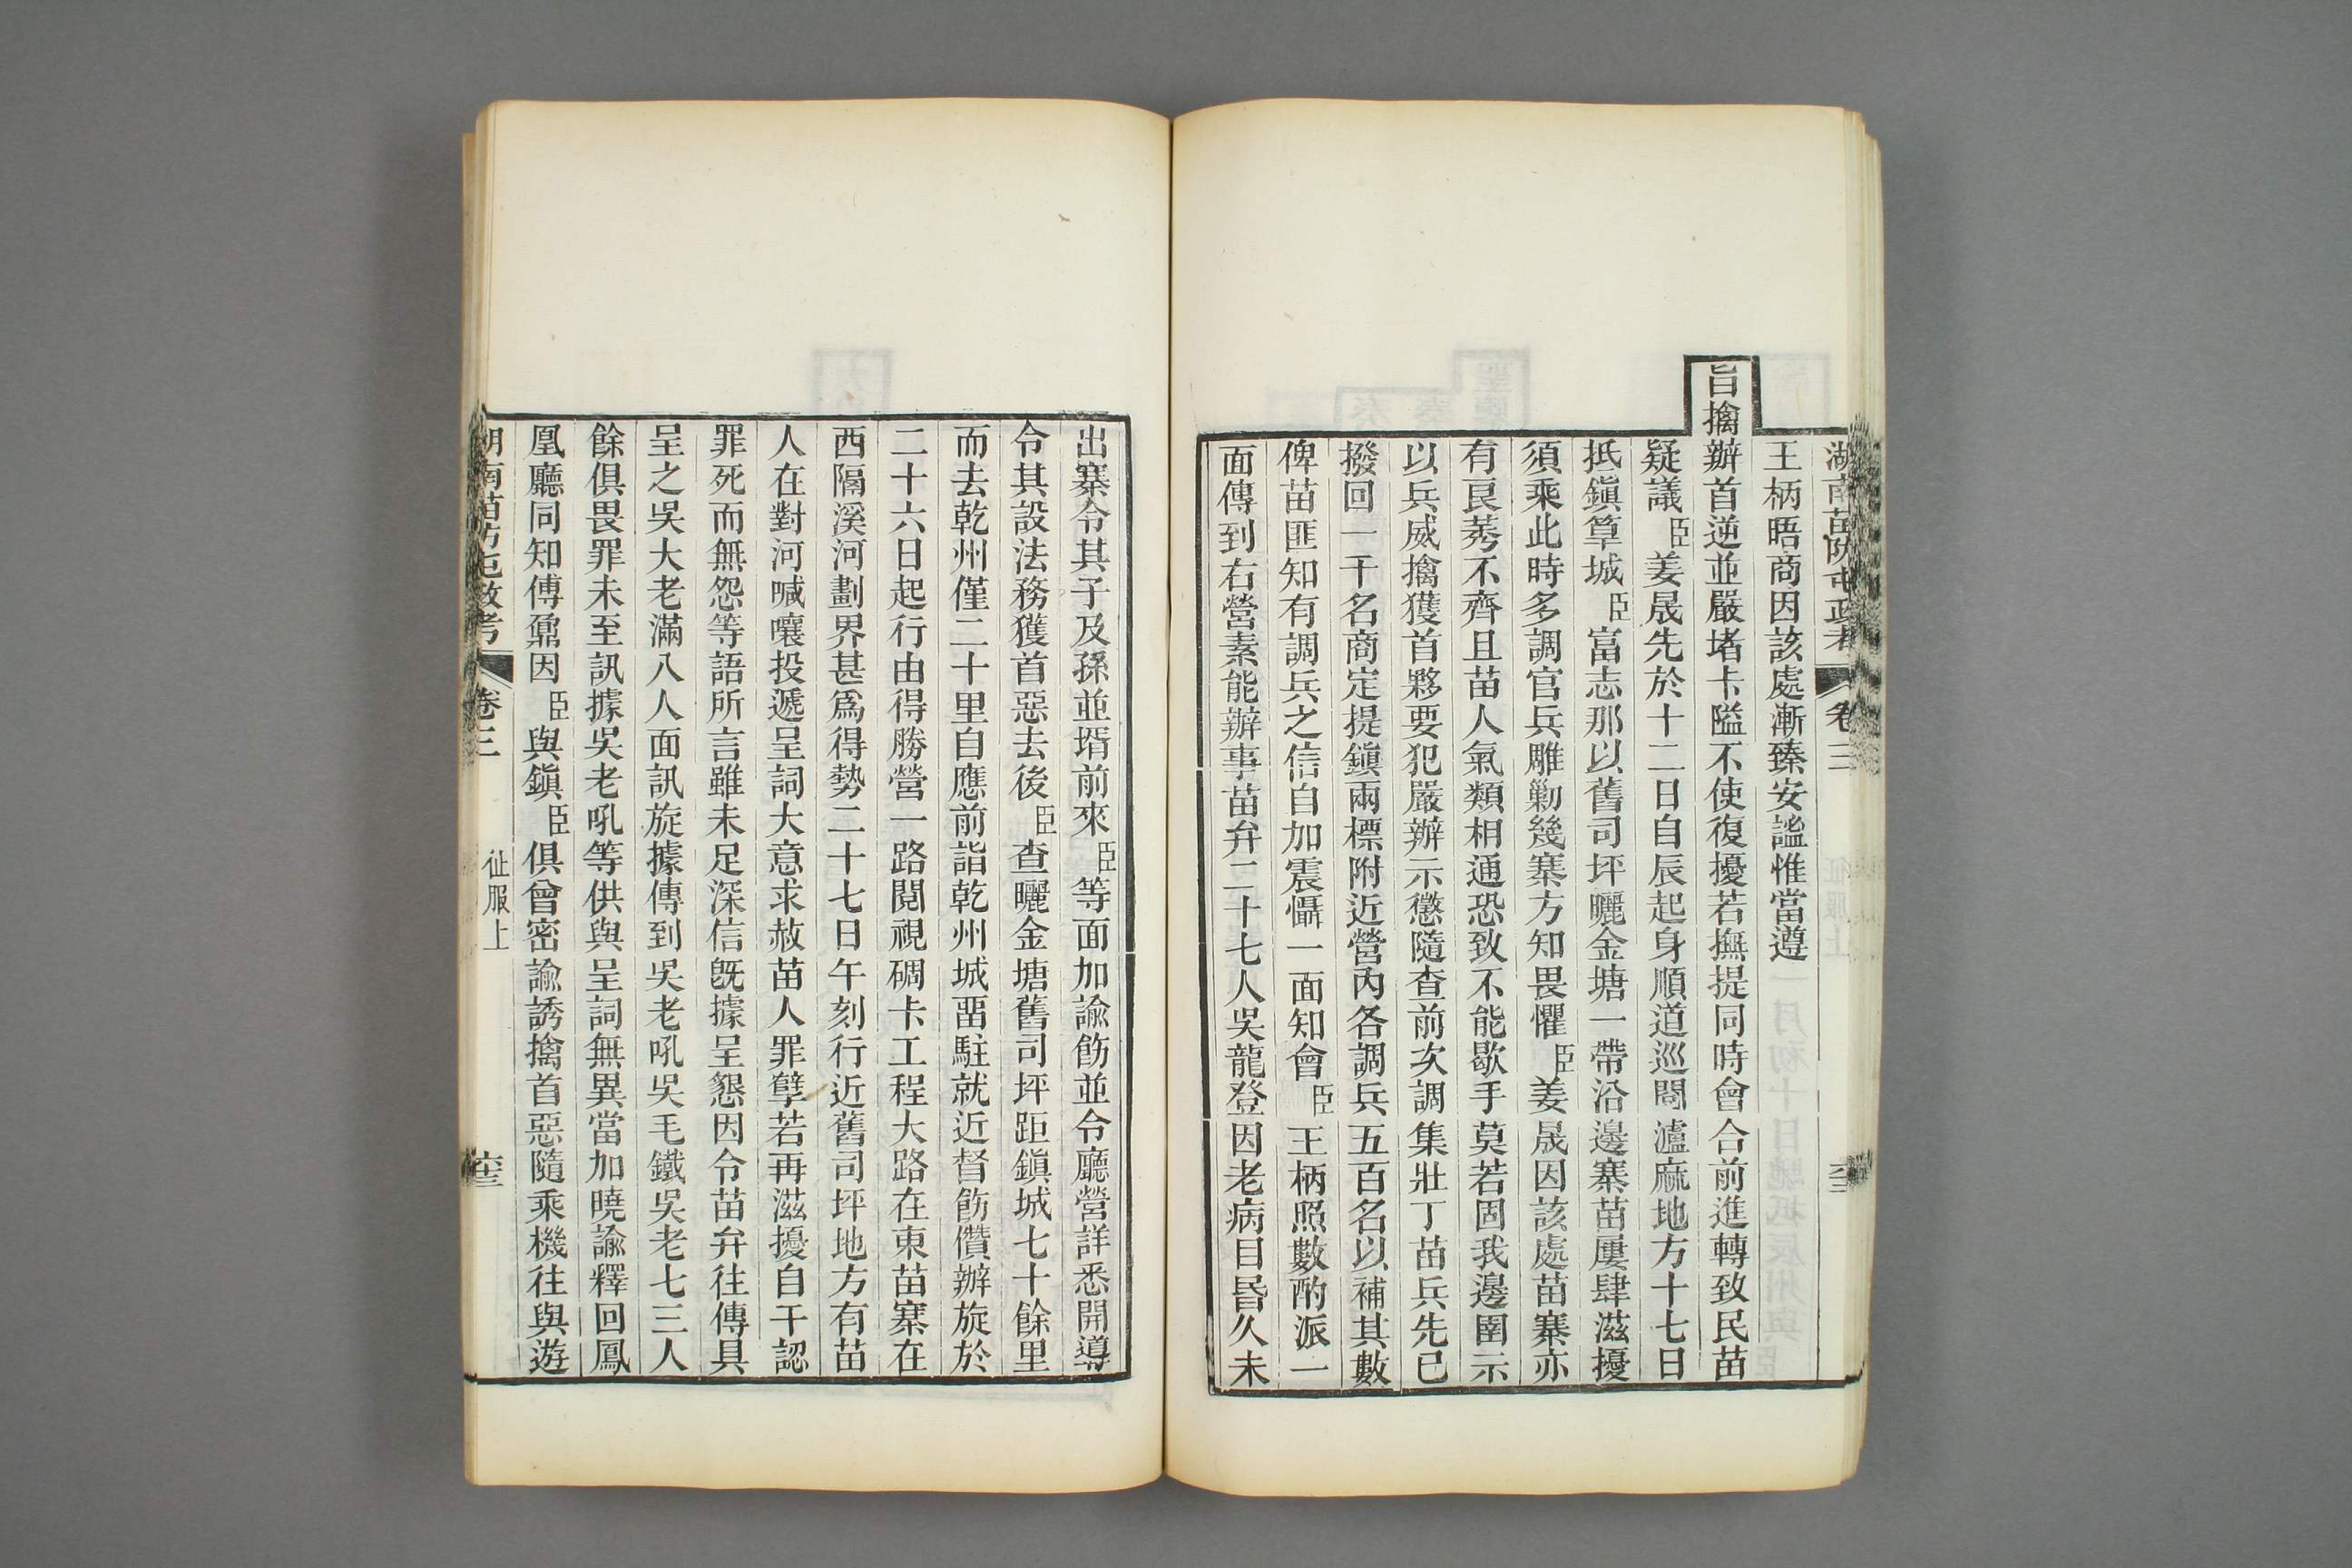 湖南苗防屯政考 卷三 六十二
王柄晤商因該處漸臻安謐惟當遵
旨擒辦首逆並嚴堵卡隘不使復擾若撫提同時會合前進轉致民苗
疑議臣姜晟先於十二日自辰起身順道巡閱瀘麻地方十七日
抵鎭筸城臣富志那以舊司坪曬金塘一帶沿邊寨苗屢肆滋擾
須乘此時多調官兵雕勦幾寨方知畏懼臣姜晟因該處苗寨亦
有良莠不齊且苗人氣類相通恐致不能歇手莫若固我邊圉示
以兵威擒獲首夥要犯嚴辦示懲隨查前次調集壯丁苗兵先已
撥回一千名商定提鎭兩標附近營內各調兵五百名以補其數
俾苗匪知有調兵之信自加震懾一面知會臣王柄照數酌派一
面傳到右營素能辦事苗弁二十七人吳龍登因老病目昬久未
出寨令其子及孫並壻前來臣等面加諭飭並令廳營詳悉開導
令其設法務獲首惡去後臣查曬金塘舊司坪距鎭城七十餘里
而去乾州僅二十里自應前詣乾州城畱駐就近督飭儹辦旋於
二十六日起行由得勝營一路閱視碉卡工程大路在東苗寨在
西隔溪河劃界甚爲得勢二十七日午刻行近舊司坪地方有苗
人在對河喊嚷投遞呈詞大意求赦苗人罪孽若再滋擾自干認
罪死而無怨等語所言雖未足深信旣據呈懇因令苗弁往傳具
呈之吳大老滿八人面訊旋據傳到吳老吼吳毛鐵吳老七三人
餘俱畏罪未至訊據吳老吼等供與呈詞無異當加曉諭釋回鳳
凰廳同知傅鼐因臣與鎭臣俱曾密諭誘擒首惡隨乘機往與遊
湖南苗防屯政考 卷三 征服上 六十三